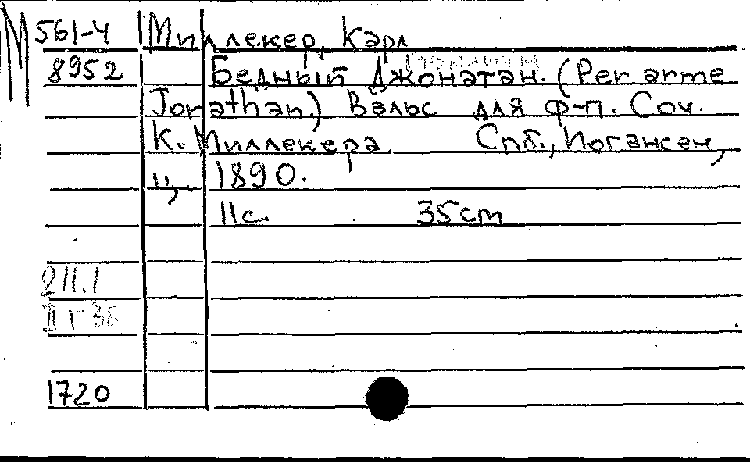 М 561-4 Миллекер, Карл
8952 Бедный Джонатан. (Per arme
Jonathan.) Вальс для ф-п. Соч.
К. Миллекера Спб., Иогансен,
ц, 1890.
11с. 35cm
211.1
II г 38
1720